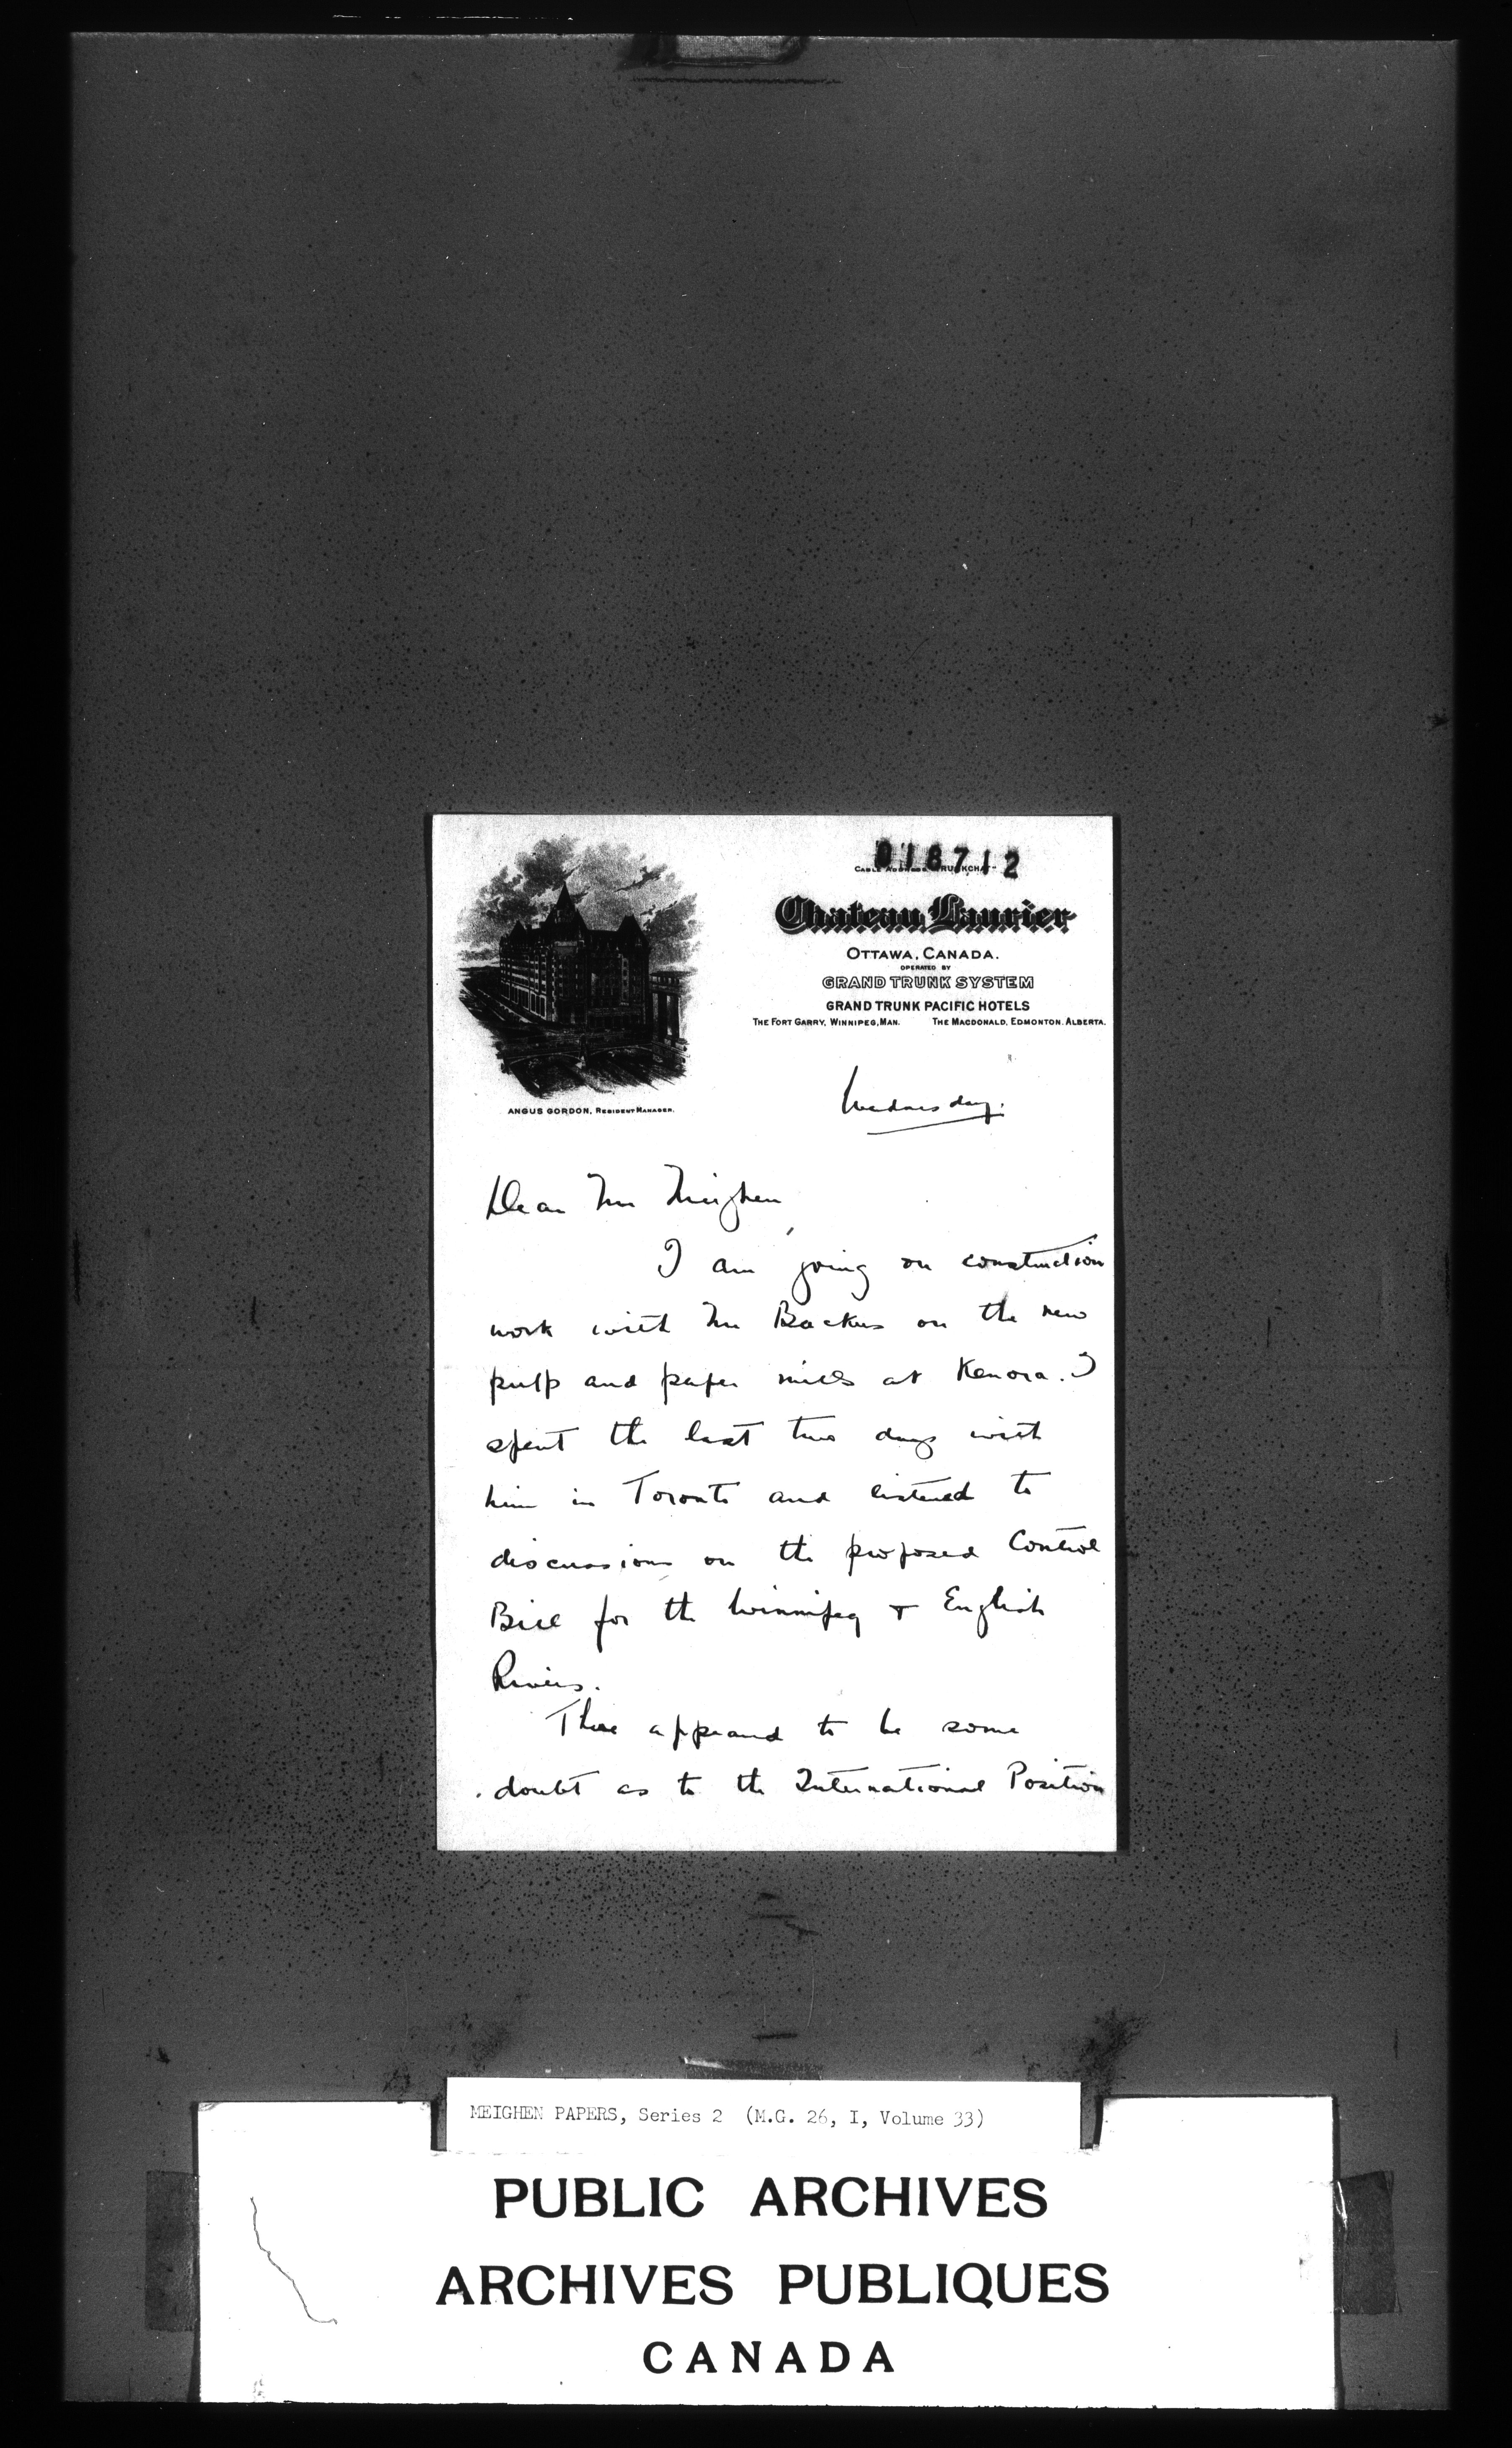 018712
CABLE ADDRESS
Chateau Laurier
OTTAWA, CANADA.
OPERATED BY
GRAND TRUNK SYSTEM
GRAND TRUNK PACIFIC HOTELS
THE FORT GARRY, WINNIPEG, MAN. THE MACDONALD, EDMONTON. ALBERTA.
ANGUS GORDON, RESIDENT MANAGER.
Wednesday.
Dear Mr Meighen
I am going on construction
work with Mr Backus on the new
pulp and paper mills at Kenora. I
spent the last two days with
him in Toronto and listened to
discussions on the proposed Control
Bill for the Winnipeg + English
Rivers.
There appeared to be some
doubt as to the International Position
MEIGHEN PAPERS, Series 2 (M.G. 26, I, Volume 33)
PUBLIC ARCHIVES
ARCHIVES PUBLIQUES
CANADA